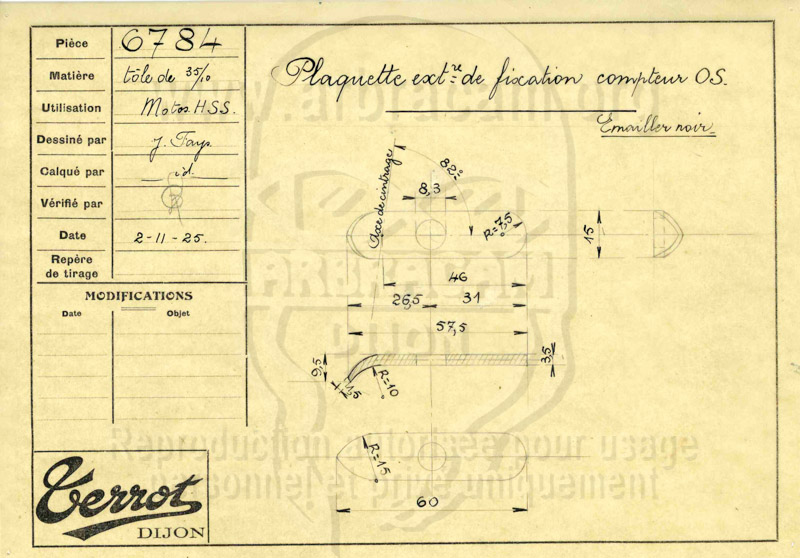 Pièce 6784
Matière tôle de 35/10
Utilisation Motos HSS.
Dessiné par J. Fays
Calqué par id.
Vérifié par
Date 2-11-25.
Repère
de tirage
MODIFICATIONS
Date Objet
Terrot
DIJON
Plaquette extre de fixation compteur OS.
Emailler noir
www.arbracam.org
Axe de cintrage
82°
8,3
R=7,5
15
46
26,5 31
57,5
9,5
1,5
R=10
3,5
R=15
60
ARBRACAM
DIJON
Reproduction autorisée pour usage
personnel et privé uniquement